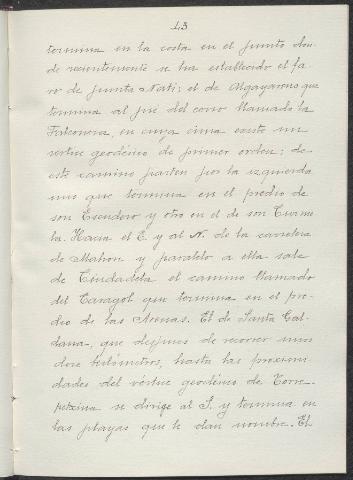 43
termina en la costa en el punto don-
de recientemente se ha establecido el fa-
ro de punta Nati; el de Algayarens que
termina al pié del cerro llamado la
Falconera, en cuya cima existe un
vertice geodésico de primer orden; de
este camino parten por la izquierda
uno que termina en el predio de
son Escudero y otro en el de son Turme
la. Hacia el E. y al N. de la carretera
de Mahon y paralelo a ella sale
de Ciudadela el camino llamado
del Caragol que termina en el pre-
dio de las Arenas. El de Santa Gal-
dana, que despues de recorrer unos
doce kilómetros, hasta las proximi-
dades del vértice geodésico de Torre
petxina se dirige al S. y termina en
las playas que le dan nombre. El